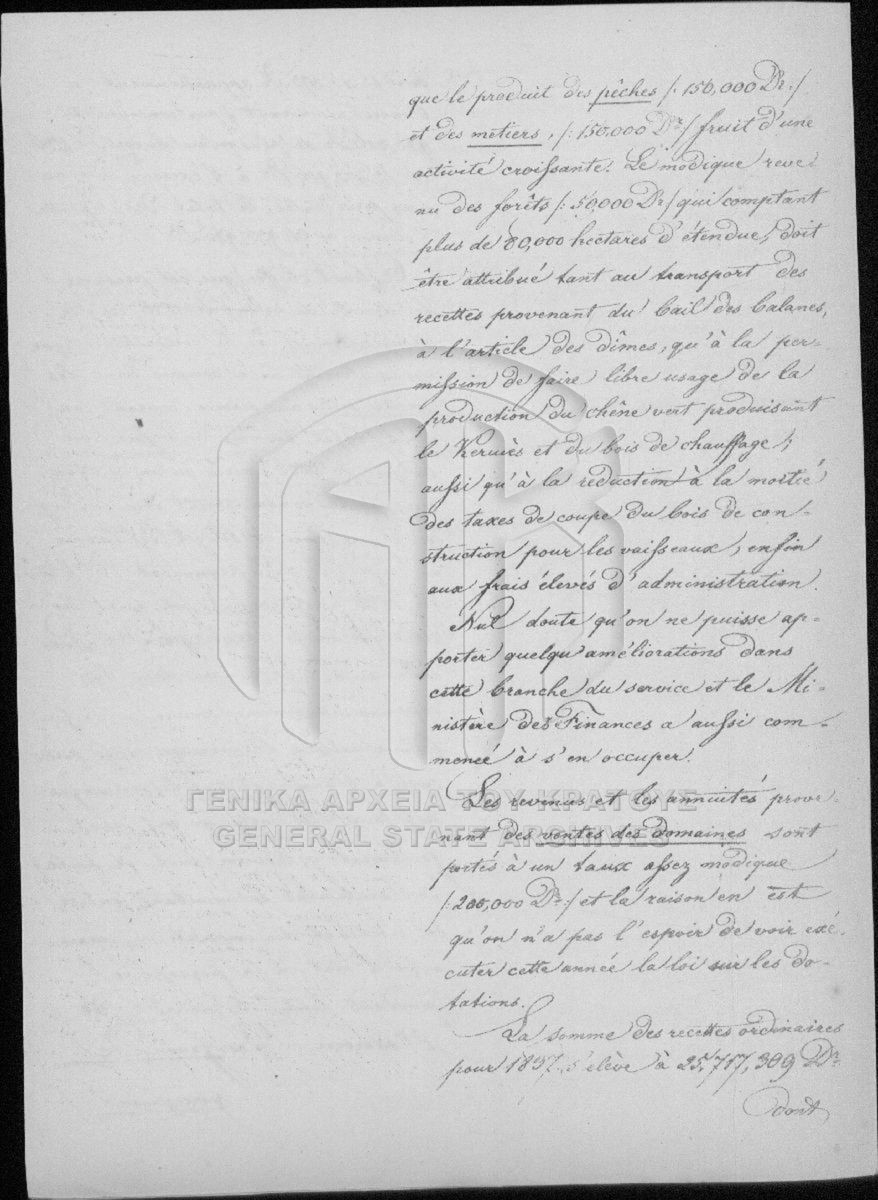 que le produit des pêches /: 150,000 Dr :/
et des métiers, /: 150,000 Dr :/ fruit d'une
activité croissante. Le modique reve-
nu des forêts /: 50,000 Dr :/ qui comptant
plus de 80,000 hectares d'étendue, doit
être attribué tant au transport des
recettes provenant du bail des balanes,
à l'article des dîmes, qu'à la per-
mission de faire libre usage de la
production du chêne vert produisant
le Kermès et du bois de chauffage;
aussi qu'à la réduction à la moitié
des taxes de coupe du bois de con-
struction pour les vaisseaux, enfin
aux frais élevés d'administration.
Nul doute qu'on ne puisse ap-
porter quelqu'améliorations dans
cette branche du service et le Mi-
nistère des Finances a aussi com-
mencé à s'en occuper.
Les revenus et les annuités prove-
nant des ventes des domaines sont
portés à un taux assez modique
/: 200,000 Dr :/ et la raison en est
qu'on n'a pas l'espoir de voir exé-
cuter cette année la loi sur les do-
tations.
La somme des recettes ordinaires
pour 1837 s'élève à 25,717,309 Dr
dont
ΓΕΝΙΚΑ ΑΡΧΕΙΑ ΤΟΥ ΚΡΑΤΟΥΣ
GENERAL STATE ARCHIVES